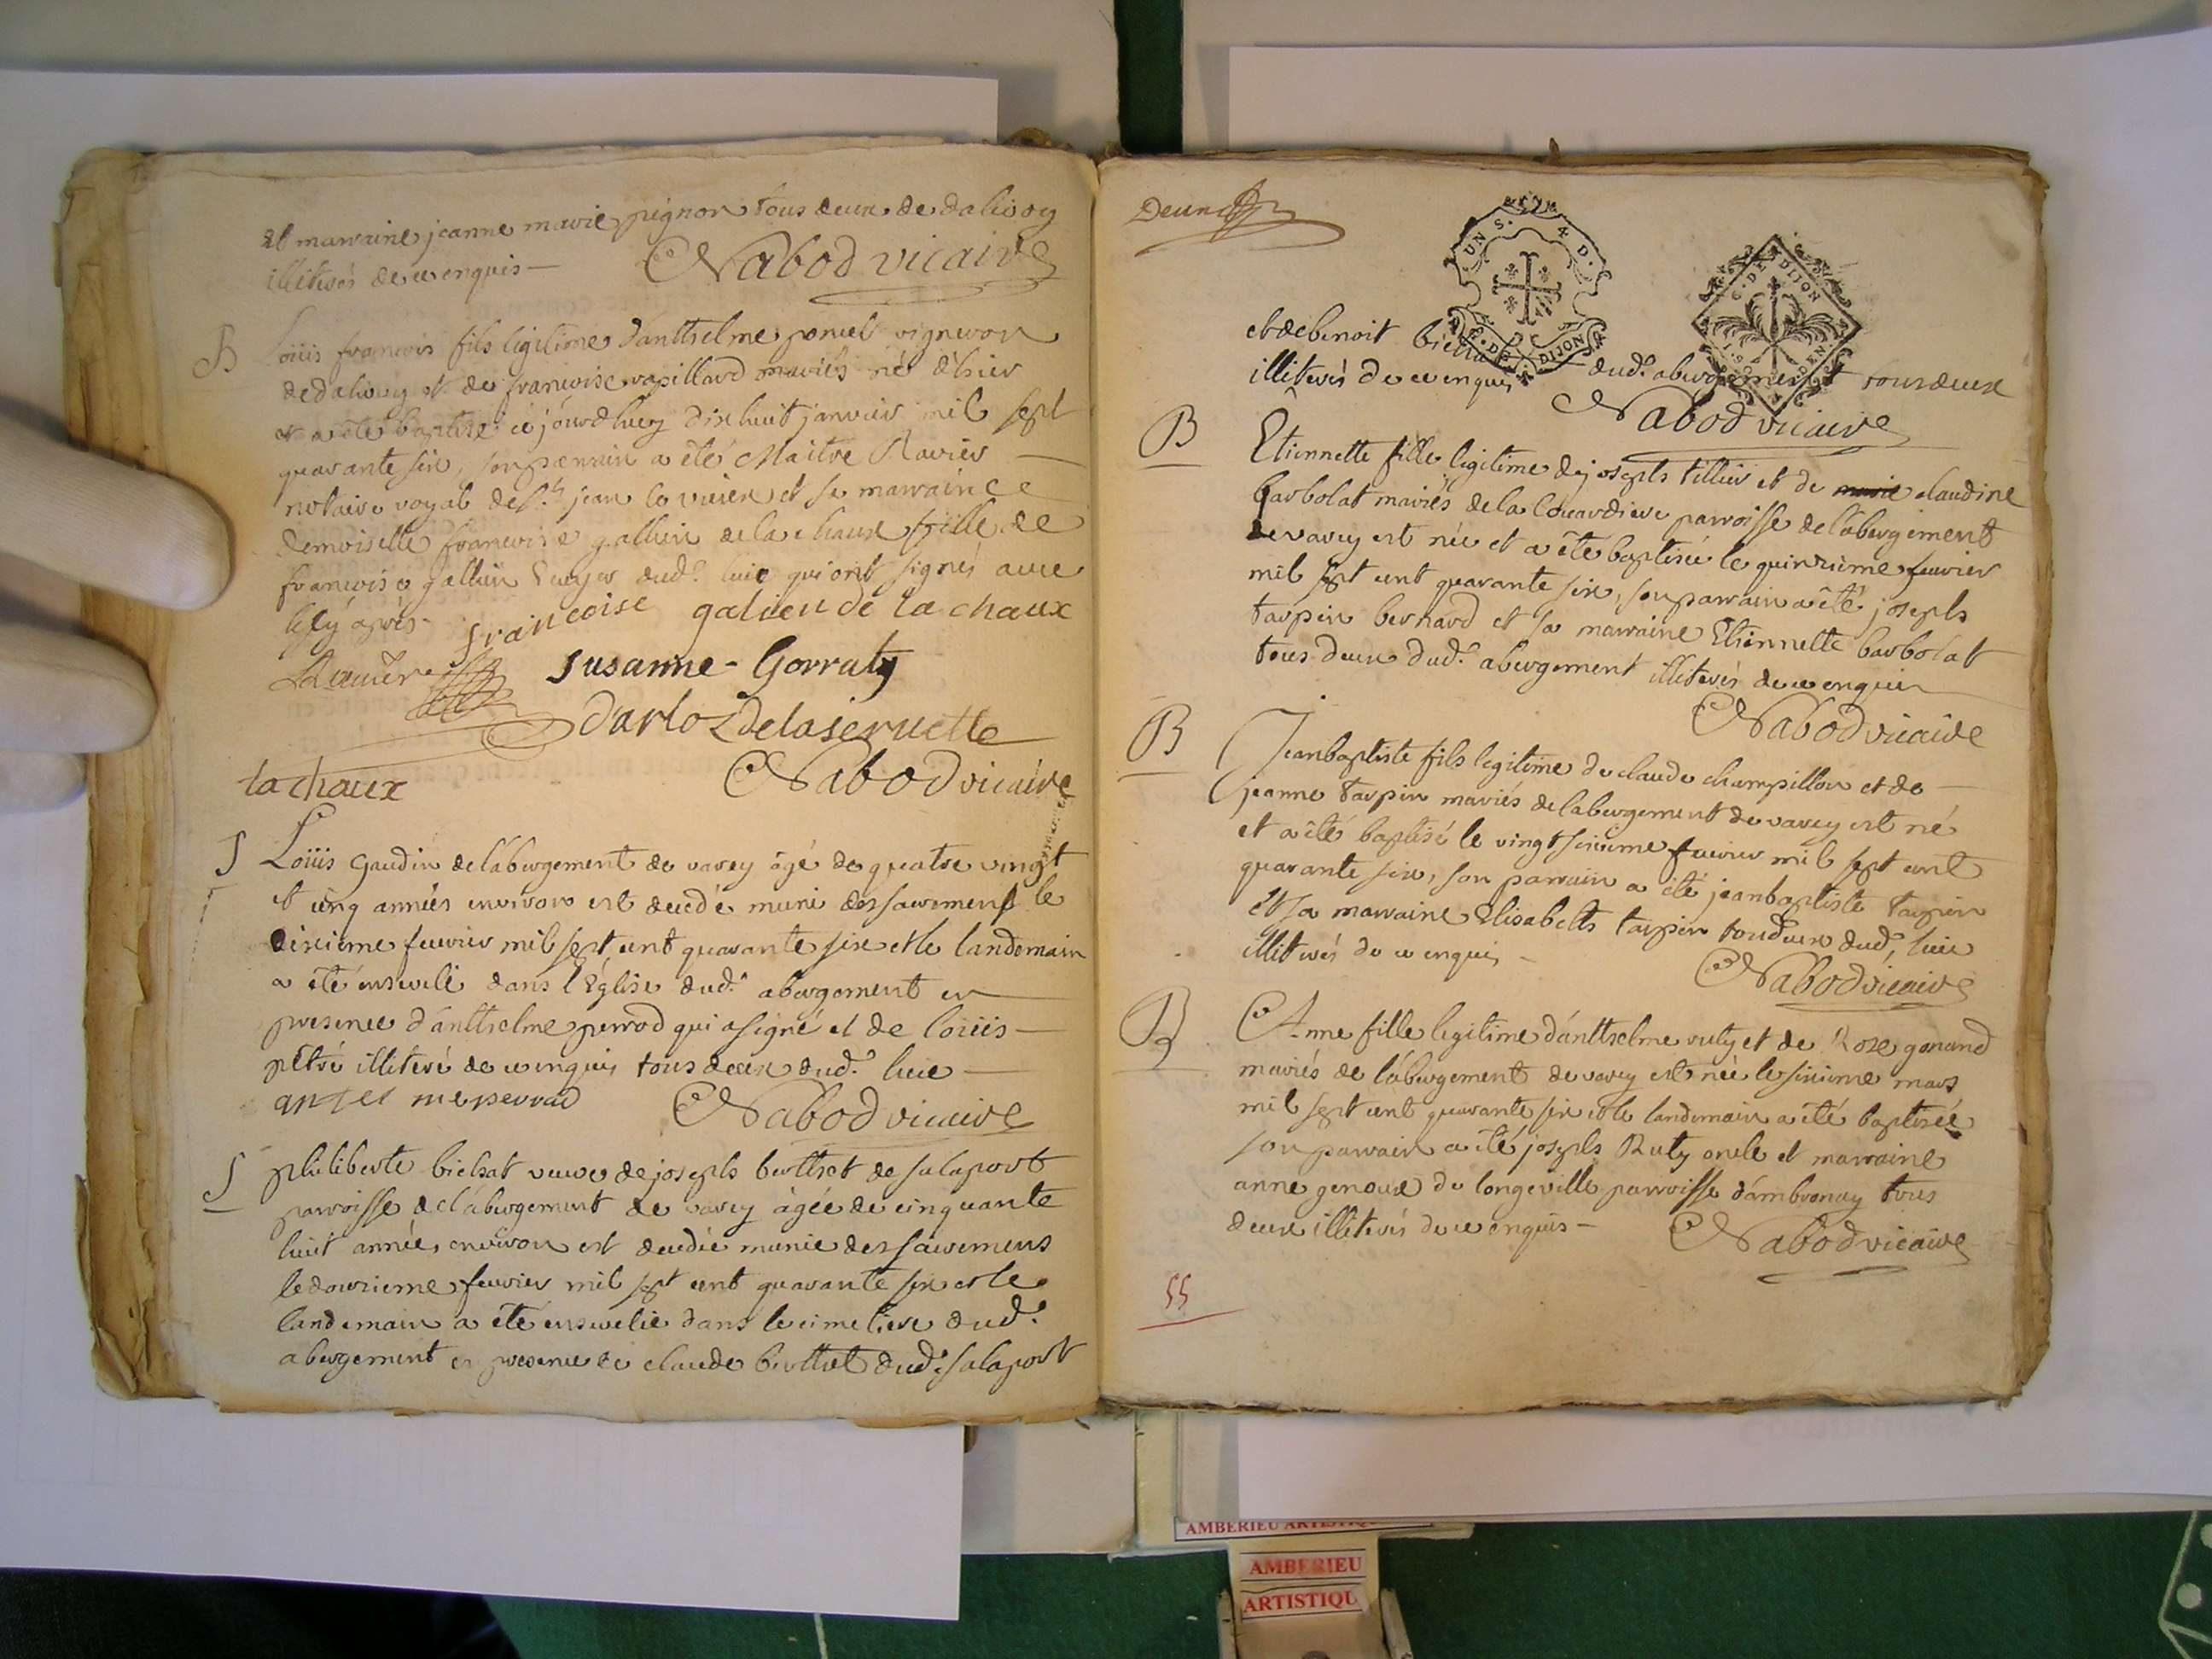 et marraine jeanne marie pignon tous deux de dalivoy
illiterés de ce enquis —
Nabod vicaire
B
Loüis francois fils legitime d'antthelme poncet vigneron
de dalivoy et de francoise rapillard mariés né d'hier
et a été baptisé ce jourdhuy dix huit janvier mil sept
quarante six, son parrain a été Maitre Ravier —
notaire royal de st jean le vieux et sa marraine
demoiselle francoise gallien de la chaux fille de
francois gallien Ecuyer dud. lieu qui ont signés avec
les cy après.
francoise galien de la chaux
Susanne - Gorraty
d'arloz delaseruette
la chaux
Nabod vicaire
S
Loüis Gaudin de l'abergement de varey âgé de quatre vingt
et cinq années environ est decedé muni des sacremens le
dixième fevrier mil sept cent quarante six et le landemain
a été enseveli dans l'Église dud. abergement en
presence d'antthelme perrod qui a signé et de loüis —
pêtré illiteré de ce enquis tous deux dud. lieu —
perrod
Nabod vicaire
S
philiberte bichat veuve de joseph berthet de salaport
parroisse de l'abergement de varey âgée de cinquante
huit années environ est decedée munie des sacremens
le douzieme fevrier mil sept cent quarante six et le
landemain a été ensevelie dans le cimetiere dud.
abergement en presence de claude berthet dud. salaport
UN S. 4. D.
G. DE DIJON
G. DE DIJON
et de benoit
dud. abergement tous deux
illiterés de ce enquis
Nabod vicaire
B
Etiennette fille legitime de joseph tillier et de marie claudine
barbolat mariés de la Couardiere parroisse de l'abergement
de varey est née et a été baptisée le quinzieme fevrier
mil sept cent quarante six, son parrain a été joseph
tarpin bernard et sa marraine Etiennette barbolat
tous deux dud. abergement illiterés de ce enquis
Nabod vicaire
B
Jeanbaptiste fils legitime de claude champillon et de —
jeanne tarpin mariés de l'abergement de varey est né
et a été baptisé le vingt sixieme fevrier mil sept cent
quarante six, son parrain a été jeanbaptiste tarpin
et sa marraine Elisabeth tarpin tous deux dud. lieu
illiterés de ce enquis —
Nabod vicaire
B
Anne fille legitime d'antthelme ruty et de Roze gonand
mariés de l'abergement de varey est née le sixieme mars
mil sept cent quarante six et le landemain a été baptisée
son parrain a été joseph Ruty oncle et marraine
anne genoux de longeville parroisse d'ambronay tous
deux illiterés de ce enquis —
Nabod vicaire
55
AMBERIEU
AMBERIEU
ARTISTIQU